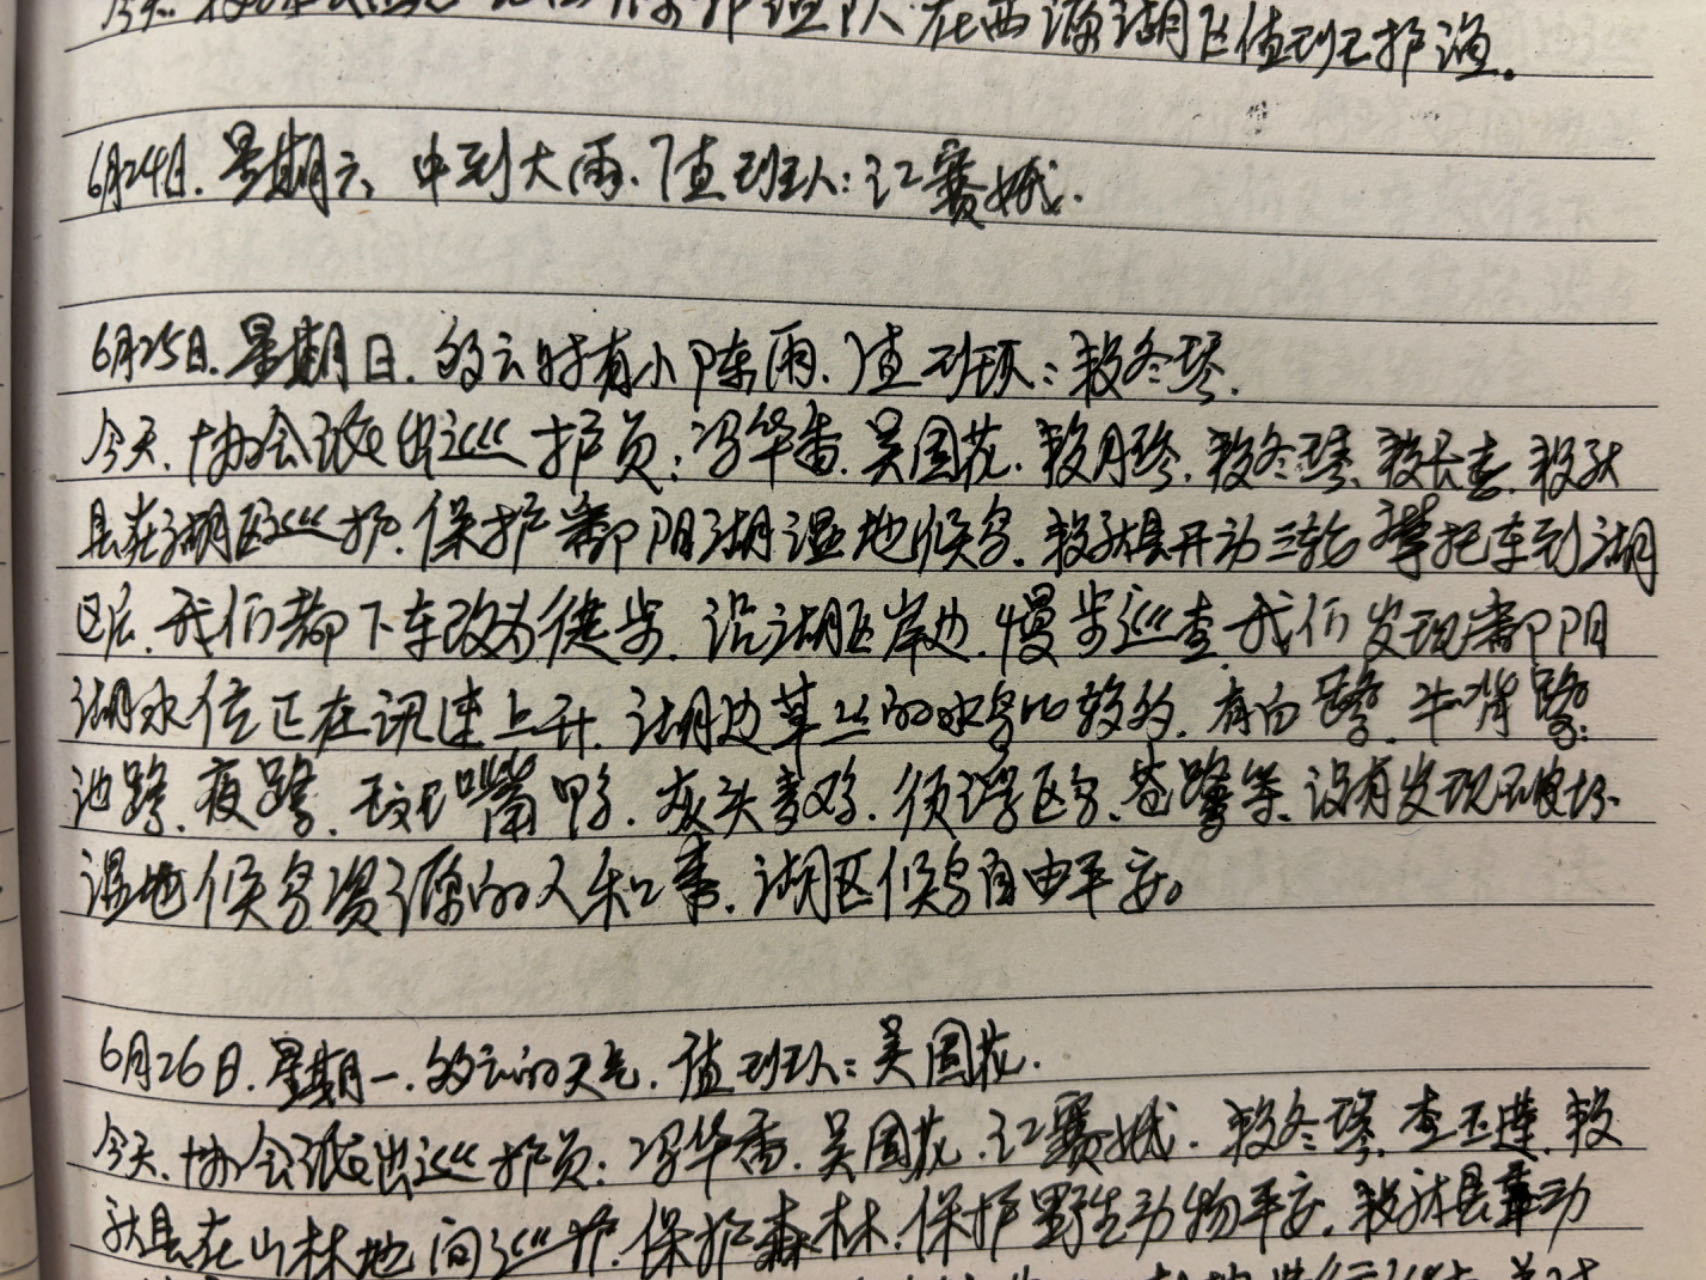 在西源湖区值班护渔。
6月24日.星期六、中到大雨.值班人:江赛娥.
6月25日.星期日.多云时有小阵雨.值班员:敖冬琴.
今天.协会派出巡护员:冯华香.吴国花.敖月珍.敖冬琴、敖长志.敖
在湖区巡护.保护鄱阳湖湿地候鸟.开动三轮摩托车到湖
区后.我们都下车改为徒步.沿湖区岸边.慢步巡查.我们发现鄱阳
湖水位正在讯速上升.湖边草丝的水鸟比较多.有白鹭.牛背鹭.
池鹭.夜鹭.斑嘴鸭.灰头麦鸡.须浮区鸟、苍鹭等.没有发现破坏
湿地候鸟资源的人和事.湖区候鸟自由平安。
6月26日.星期一.多云的天气.值班人:吴国花.
今天.协会派出巡护员:冯华香.吴国花.江赛娥.敖冬琴.查玉莲.敖
在山林地间巡护.保护森林.保护野生动物平安.